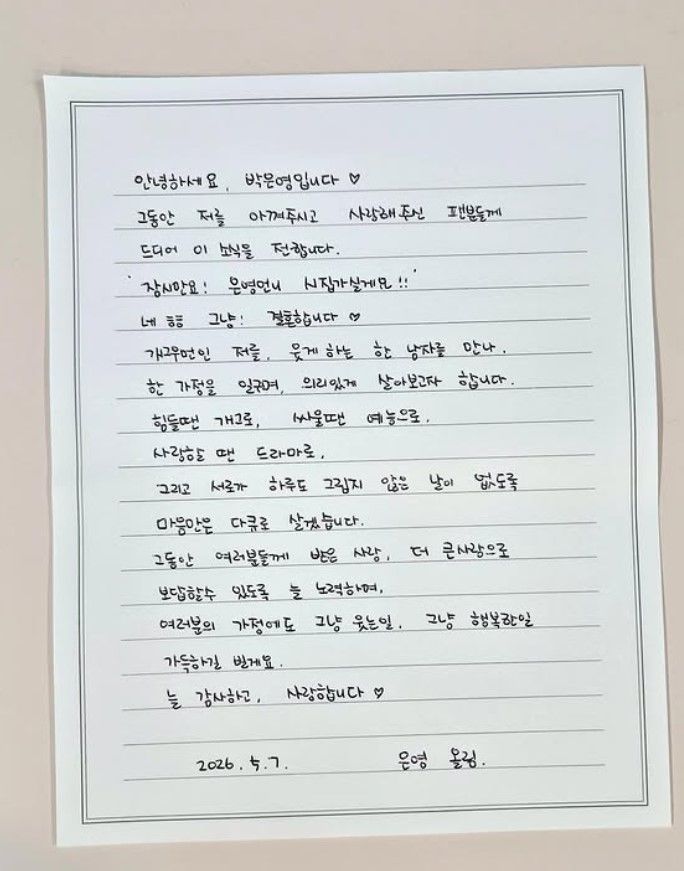 안녕하세요, 박은영입니다 ♡
그동안 저를 아껴주시고 사랑해주신 팬분들께
드디어 이 소식을 전합니다.
'잠시만요! 은영언니 시집가실게요!!'
네 ㅎㅎ 그냥! 결혼합니다 ♡
개그우먼인 저를, 웃게하는 한 남자를 만나,
한 가정을 일구며, 의리있게 살아보고자 합니다.
힘들땐 개그로, 싸울땐 예능으로,
사랑할 땐 드라마로,
그리고 서로가 하루도 그립지 않은 날이 없도록
마음만은 다큐로 살겠습니다.
그동안 여러분들께 받은 사랑, 더 큰사랑으로
보답할수 있도록 늘 노력하며,
여러분의 가정에도 그냥 웃는일, 그냥 행복한일
가득하길 빌게요.
늘 감사하고, 사랑합니다 ♡
2026.5.7. 은영 올림.